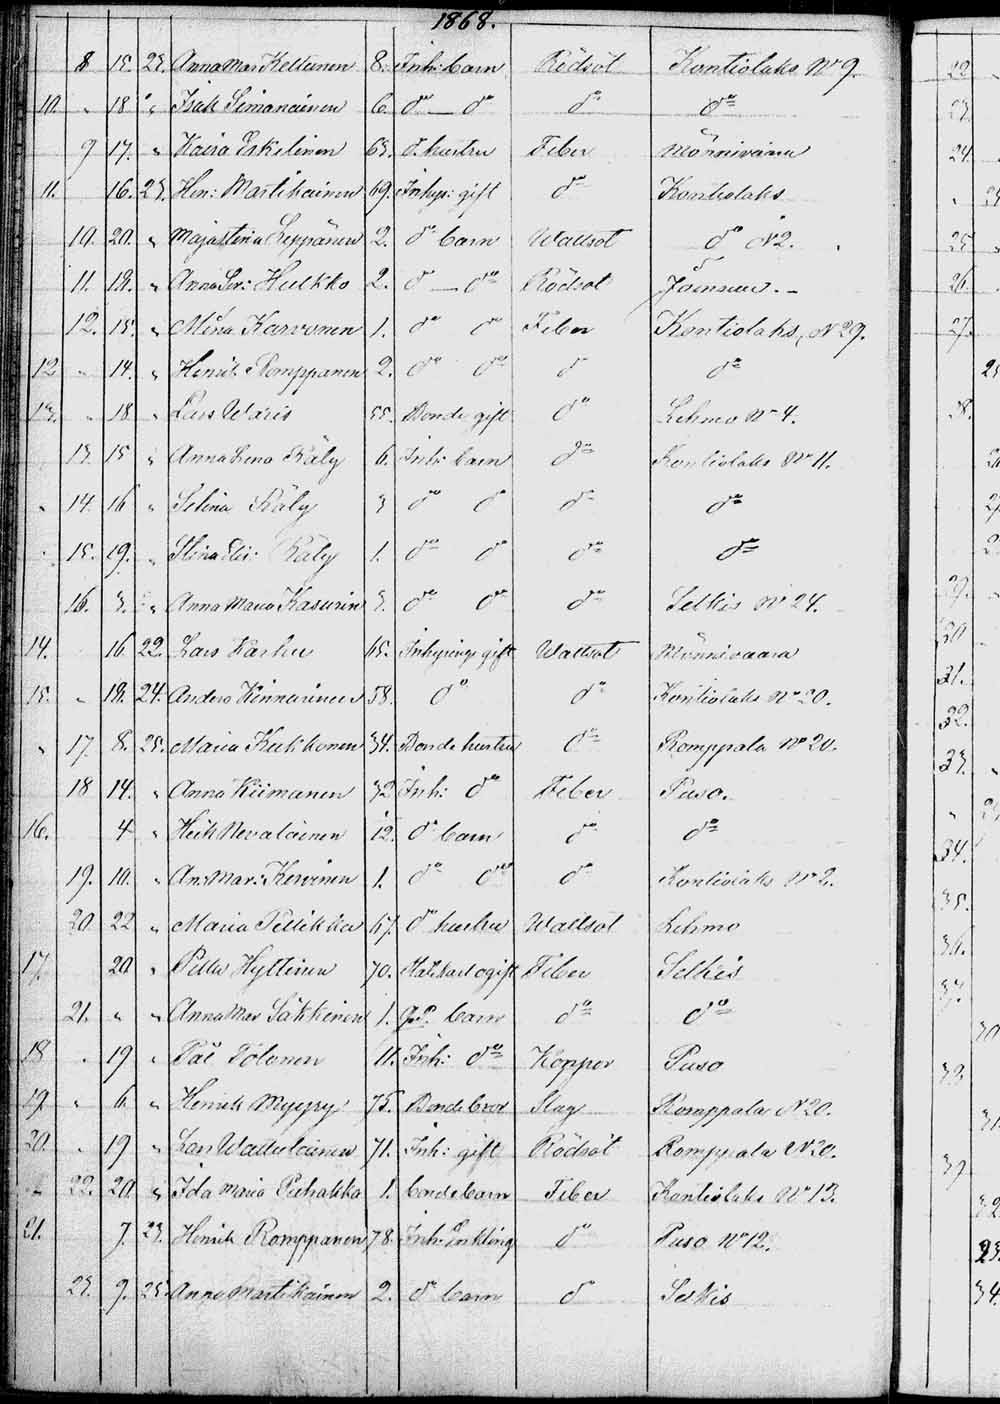 1868.
8 15. 23. Anna Mar Keltunen 8. Inh: barn Rödsot Kontiolaks No 9.
10. " 18 " Isak Simanainen 6. do do do do
9 17. " Kaisa Eskelinen 63. d. hustru Feber Mönnivaara
11. 16. 23. Hen: Martikainen 69. Inhys: gift do Kontiolaks
10. 20. " Maja Stina Leppänen 2. do barn Wattsot do N 2.
11. 19. " Anna Hulkko 2. do do Rödsot Joensuu.
12. 15. " Mina Karvonen 1. do do Feber Kontiolaks, N 29.
12 " 14. " Henrik Romppanen 2. do do do do
13. " 18. " Lars Waris 55. Bonde gift do Lehmo No 4.
13. 15 " Anna Lena Räty 6. Inh: barn do Kontiolaks No 11.
" 14. 16 " Selina Räty 3 do do do do
15. 19. " Stina Eli: Räty 1. do do do do
16. 3. " Anna Maria Kasurin 3. do do do Selkis No 24.
14. 16 22. Lars Karhu 65. Inhysing gift Wattsot Mönnivaara
15. " 19. 24. Anders Kinnarinen 58. do do Kontiolaks No 20.
" 17. 8. 25. Maria Kukkonen 34. Bonde hustru do Romppala No 20.
18 14. " Anna Kiimanen 32 Inh: do Feber Puso.
16. 4 " Heik Nevalainen 12. do barn do do
19. 10. " An: Mar: Kervinen 1. do do do Kontiolaks No 2.
20 22 " Maria Pellikka 67. do hustru Wattsot Lehmo
17. 20 " Petter Hyttinen 70. ogift Feber Selkis
21. " " Anna Mar Säkkinen 1. barn do do
18 " 19 " Pål Tolonen 11. Inh: do Koppor Puso
19. " 6 " Henrik Myyry 75. Bonde bror Slag Romppala N 20.
20. " 19 " Lars Wattulainen 71. Inh: gift Rödsot Romppala N 20.
22. 20 " Ida Maria Puhakka 1. bondebarn Feber Kontiolaks No 13.
21. 7. 23. Henrik Romppanen 78. Inh: Enkling do Puso No 12.
23. 9. 25. Anna Martikainen 2. do barn do Selkis